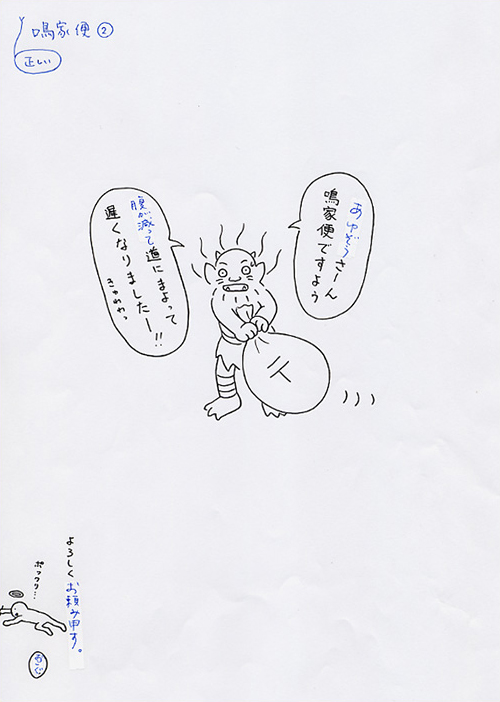 鳴家便②
正しい
あゆぞうさーん
鳴家便ですよう
腹が減って道にまよって
遅くなりましたー!!
きゅわわっ
よろしくお頼み申す。
ポックリ…
〒